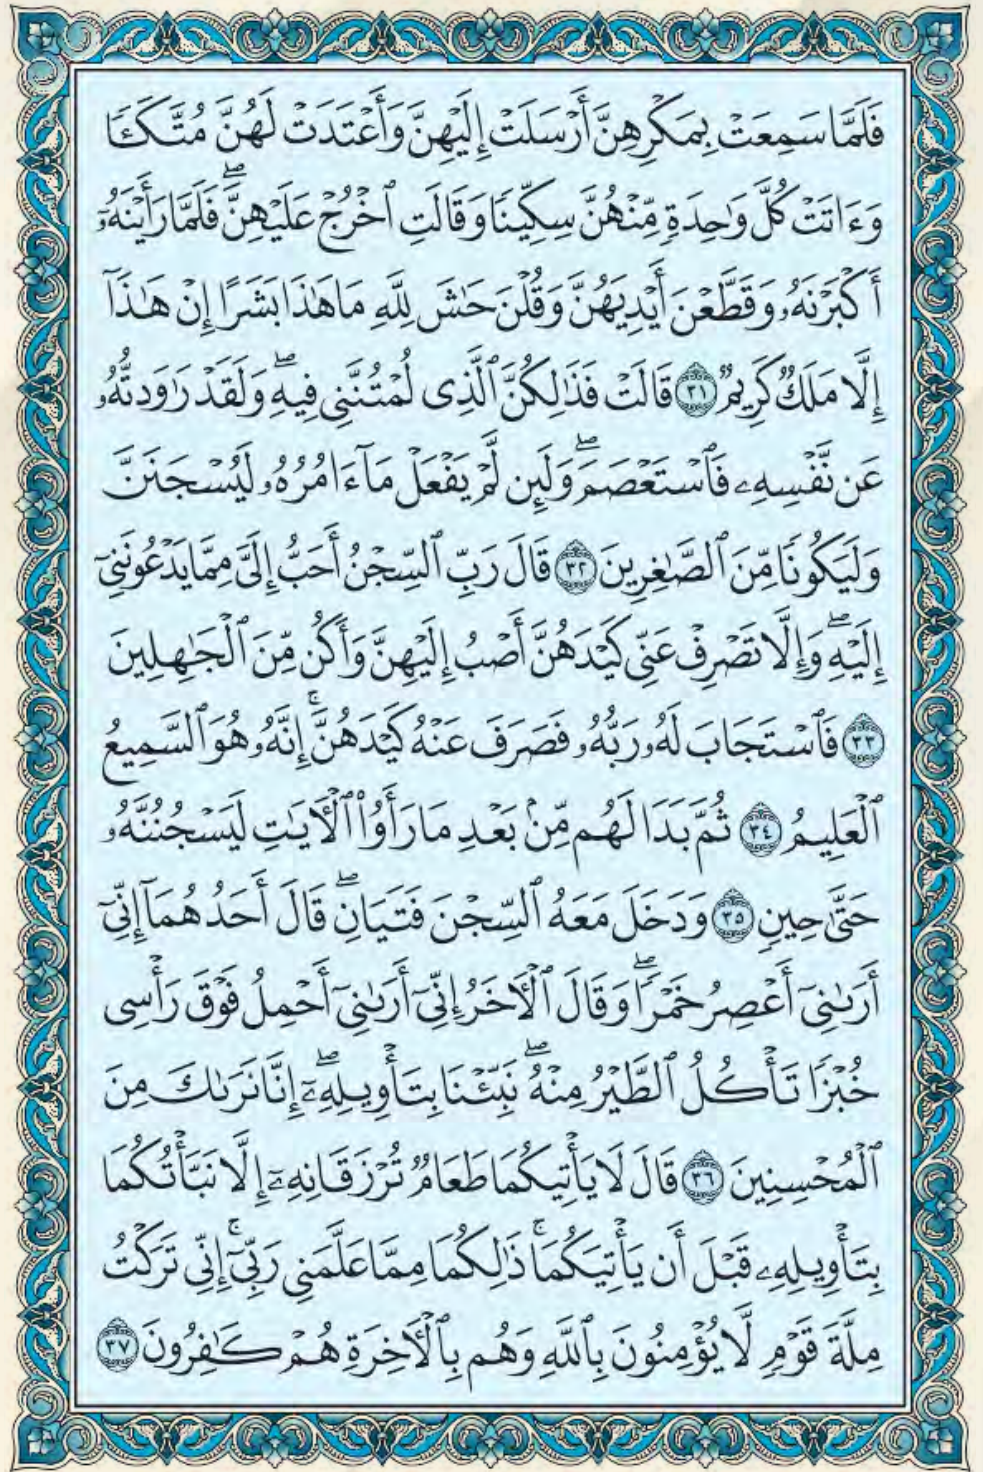 فَلَمَّا سَمِعَتْ بِمَكْرِهِنَّ أَرْسَلَتْ إِلَيْهِنَّ وَأَعْتَدَتْ لَهُنَّ مُتَّكَـًٔا
وَءَاتَتْ كُلَّ وَٰحِدَةٍ مِّنْهُنَّ سِكِّينًا وَقَالَتِ ٱخْرُجْ عَلَيْهِنَّۖ فَلَمَّا رَأَيْنَهُۥٓ
أَكْبَرْنَهُۥ وَقَطَّعْنَ أَيْدِيَهُنَّ وَقُلْنَ حَٰشَ لِلَّهِ مَا هَٰذَا بَشَرًا إِنْ هَٰذَآ
إِلَّا مَلَكٌ كَرِيمٌ ٣١ قَالَتْ فَذَٰلِكُنَّ ٱلَّذِى لُمْتُنَّنِى فِيهِۖ وَلَقَدْ رَٰوَدتُّهُۥ
عَن نَّفْسِهِۦ فَٱسْتَعْصَمَۖ وَلَئِن لَّمْ يَفْعَلْ مَآ ءَامُرُهُۥ لَيُسْجَنَنَّ
وَلَيَكُونًا مِّنَ ٱلصَّٰغِرِينَ ٣٢ قَالَ رَبِّ ٱلسِّجْنُ أَحَبُّ إِلَىَّ مِمَّا يَدْعُونَنِىٓ
إِلَيْهِۖ وَإِلَّا تَصْرِفْ عَنِّى كَيْدَهُنَّ أَصْبُ إِلَيْهِنَّ وَأَكُن مِّنَ ٱلْجَٰهِلِينَ
٣٣ فَٱسْتَجَابَ لَهُۥ رَبُّهُۥ فَصَرَفَ عَنْهُ كَيْدَهُنَّۚ إِنَّهُۥ هُوَ ٱلسَّمِيعُ
ٱلْعَلِيمُ ٣٤ ثُمَّ بَدَا لَهُم مِّنۢ بَعْدِ مَا رَأَوُا۟ ٱلْءَايَٰتِ لَيَسْجُنُنَّهُۥ
حَتَّىٰ حِينٍ ٣٥ وَدَخَلَ مَعَهُ ٱلسِّجْنَ فَتَيَانِۖ قَالَ أَحَدُهُمَآ إِنِّىٓ
أَرَىٰنِىٓ أَعْصِرُ خَمْرًاۖ وَقَالَ ٱلْءَاخَرُ إِنِّىٓ أَرَىٰنِىٓ أَحْمِلُ فَوْقَ رَأْسِى
خُبْزًا تَأْكُلُ ٱلطَّيْرُ مِنْهُۖ نَبِّئْنَا بِتَأْوِيلِهِۦٓۖ إِنَّا نَرَىٰكَ مِنَ
ٱلْمُحْسِنِينَ ٣٦ قَالَ لَا يَأْتِيكُمَا طَعَامٌ تُرْزَقَانِهِۦٓ إِلَّا نَبَّأْتُكُمَا
بِتَأْوِيلِهِۦ قَبْلَ أَن يَأْتِيَكُمَاۚ ذَٰلِكُمَا مِمَّا عَلَّمَنِى رَبِّىٓۚ إِنِّى تَرَكْتُ
مِلَّةَ قَوْمٍ لَّا يُؤْمِنُونَ بِٱللَّهِ وَهُم بِٱلْءَاخِرَةِ هُمْ كَٰفِرُونَ ٣٧